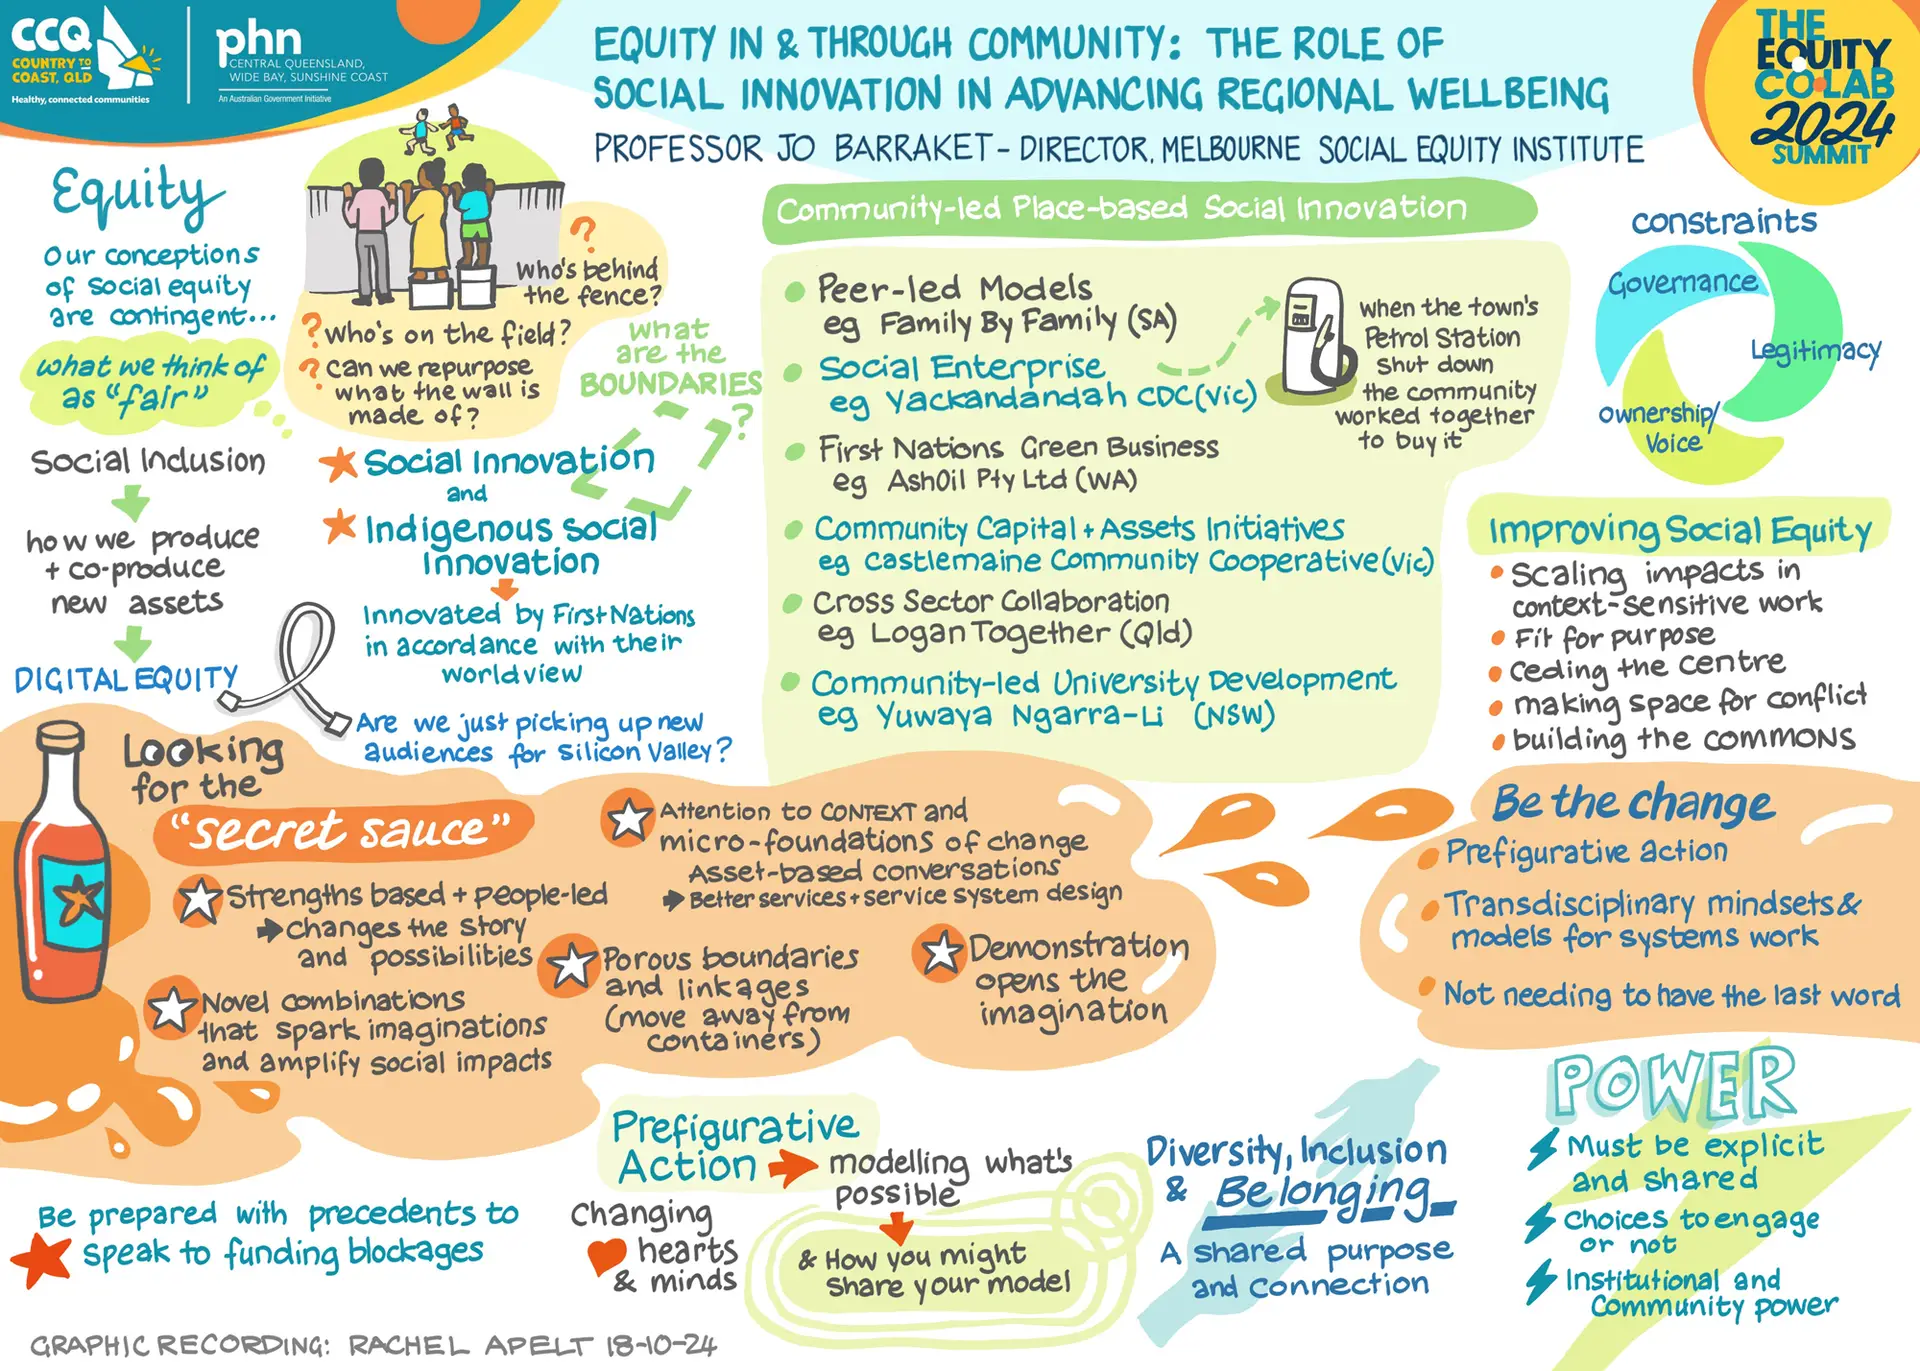 CCQ
COUNTRY TO
COAST, QLD
Healthy, connected communities
phn
CENTRAL QUEENSLAND,
WIDE BAY, SUNSHINE COAST
An Australian Government Initiative
EQUITY IN & THROUGH COMMUNITY: THE ROLE OF
SOCIAL INNOVATION IN ADVANCING REGIONAL WELLBEING
PROFESSOR JO BARRAKET - DIRECTOR, MELBOURNE SOCIAL EQUITY INSTITUTE
THE
EQUITY
CO-LAB
2024
SUMMIT
Equity
Our conceptions
of social equity
are contingent...
what we think of
as "fair"
Social Inclusion
how we produce
+ co-produce
new assets
DIGITAL EQUITY
?
Who's behind
the fence?
? Who's on the field?
? Can we repurpose
what the wall is
made of?
What
are the
BOUNDARIES
?
Social Innovation
and
Indigenous Social
Innovation
Innovated by First Nations
in accordance with their
worldview
Are we just picking up new
audiences for Silicon Valley?
Community-led Place-based Social Innovation
Peer-led Models
eg Family By Family (SA)
Social Enterprise
eg Yackandandah CDC (Vic)
First Nations Green Business
eg AshOil Pty Ltd (WA)
Community Capital + Assets Initiatives
eg Castlemaine Community Cooperative (Vic)
Cross Sector Collaboration
eg Logan Together (Qld)
Community-led University Development
eg Yuwaya Ngarra-Li (NSW)
When the town's
Petrol Station
shut down
the community
worked together
to buy it
Constraints
Governance
Legitimacy
Ownership/
Voice
Improving Social Equity
Scaling impacts in
context-sensitive work
Fit for purpose
Ceding the centre
making space for conflict
building the COMMONS
Looking
for the
"secret sauce"
Strengths based + people-led
changes the story
and possibilities
Novel combinations
that spark imaginations
and amplify social impacts
Attention to CONTEXT and
micro-foundations of change
Asset-based conversations
Better services + service system design
Porous boundaries
and linkages
(move away from
containers)
Demonstration
opens the
imagination
Be the change
Prefigurative action
Transdisciplinary mindsets &
models for systems work
Not needing to have the last word
Be prepared with precedents to
speak to funding blockages
Prefigurative
Action
modelling what's
possible
Changing
hearts
& minds
& How you might
Share your model
Diversity, Inclusion
& Belonging
A shared purpose
and connection
POWER
Must be explicit
and shared
Choices to engage
or not
Institutional and
Community power
GRAPHIC RECORDING: RACHEL APELT 18-10-24